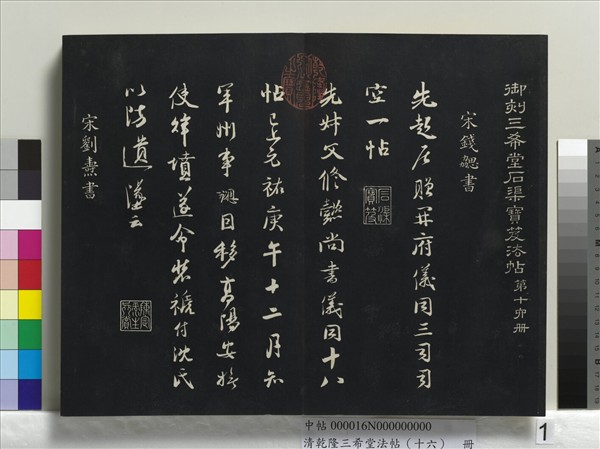 御刻三希堂石渠寶笈法帖 第十六冊
宋錢勰書
先起居贈開府儀同三司司
空一帖
先叔父修懿尚書儀同十八
帖 元祐庚午十二月知
軍州事 日移高陽安撫
使 墳遂令裝褫付沈氏
以防遺 云
宋劉燾書
石渠寶笈
中帖 000016N000000000
清乾隆三希堂法帖（十六） 冊
1